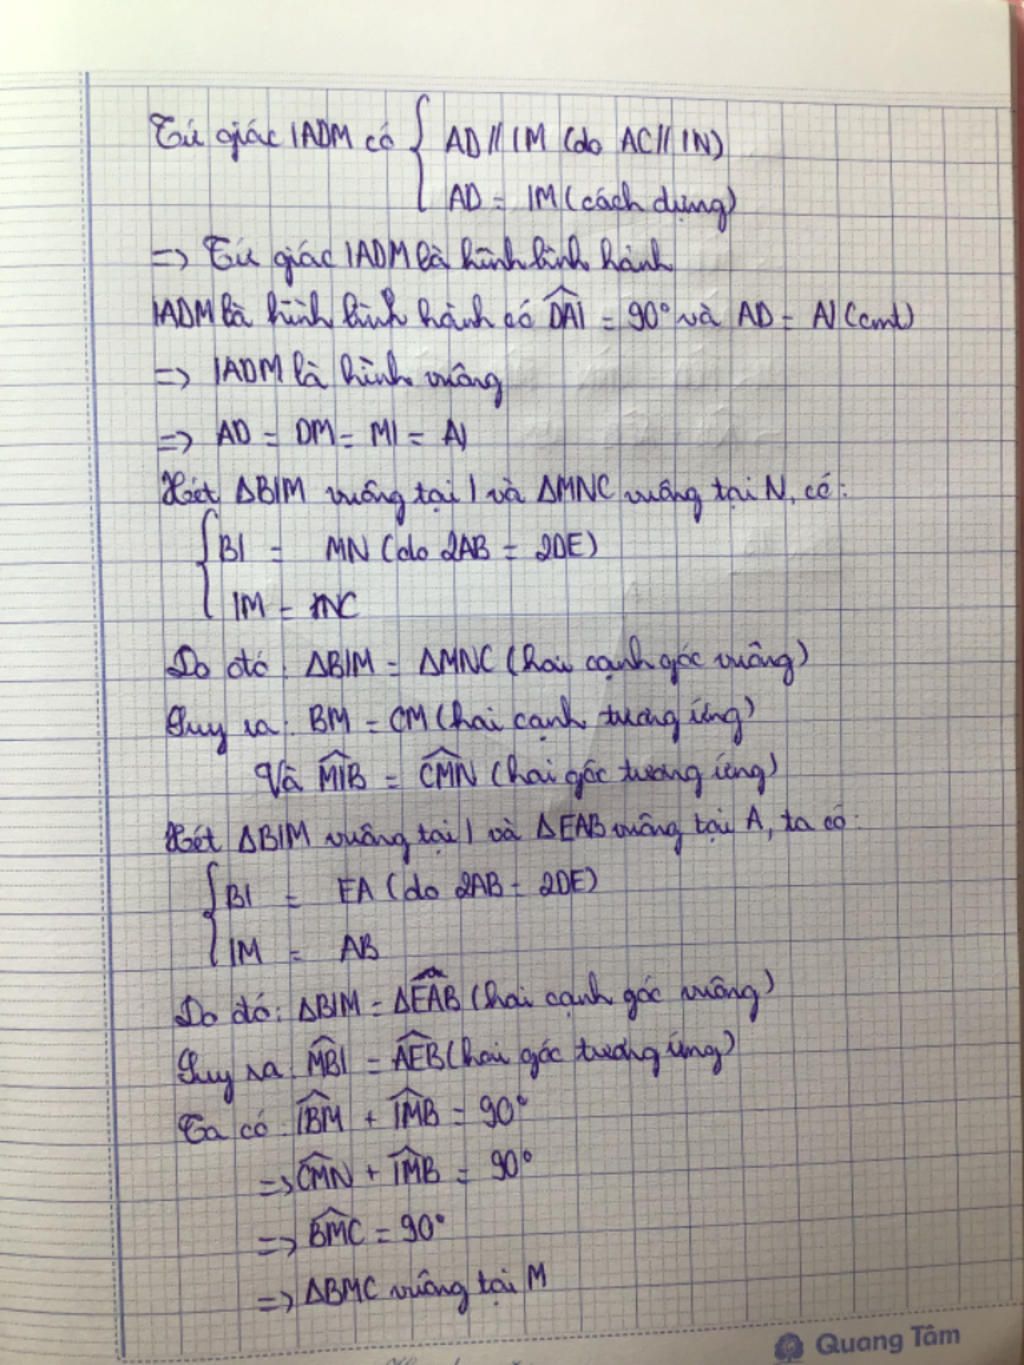 Tứ giác IADM có { AD // IM (do AC // IN)
AD = IM (cách dựng)
=> Tứ giác IADM là hình bình hành
IADM là hình bình hành có DAI = 90° và AD = AI (cmt)
=> IADM là hình vuông
=> AD = DM = MI = AI
Xét ΔBIM vuông tại I và ΔMNC vuông tại N, có:
{ BI = MN (do 2AB = 2DE)
IM = NC
Do đó: ΔBIM = ΔMNC (hai cạnh góc vuông)
Suy ra: BM = CM (hai cạnh tương ứng)
Và MIB = CMN (hai góc tương ứng)
Xét ΔBIM vuông tại I và ΔEAB vuông tại A, ta có:
{ BI = EA (do 2AB = 2DE)
IM = AB
Do đó: ΔBIM = ΔEAB (hai cạnh góc vuông)
Suy ra: MBI = AEB (hai góc tương ứng)
Ta có: IBM + IMB = 90°
=> CMN + IMB = 90°
=> BMC = 90°
=> ΔBMC vuông tại M
Quang Tâm